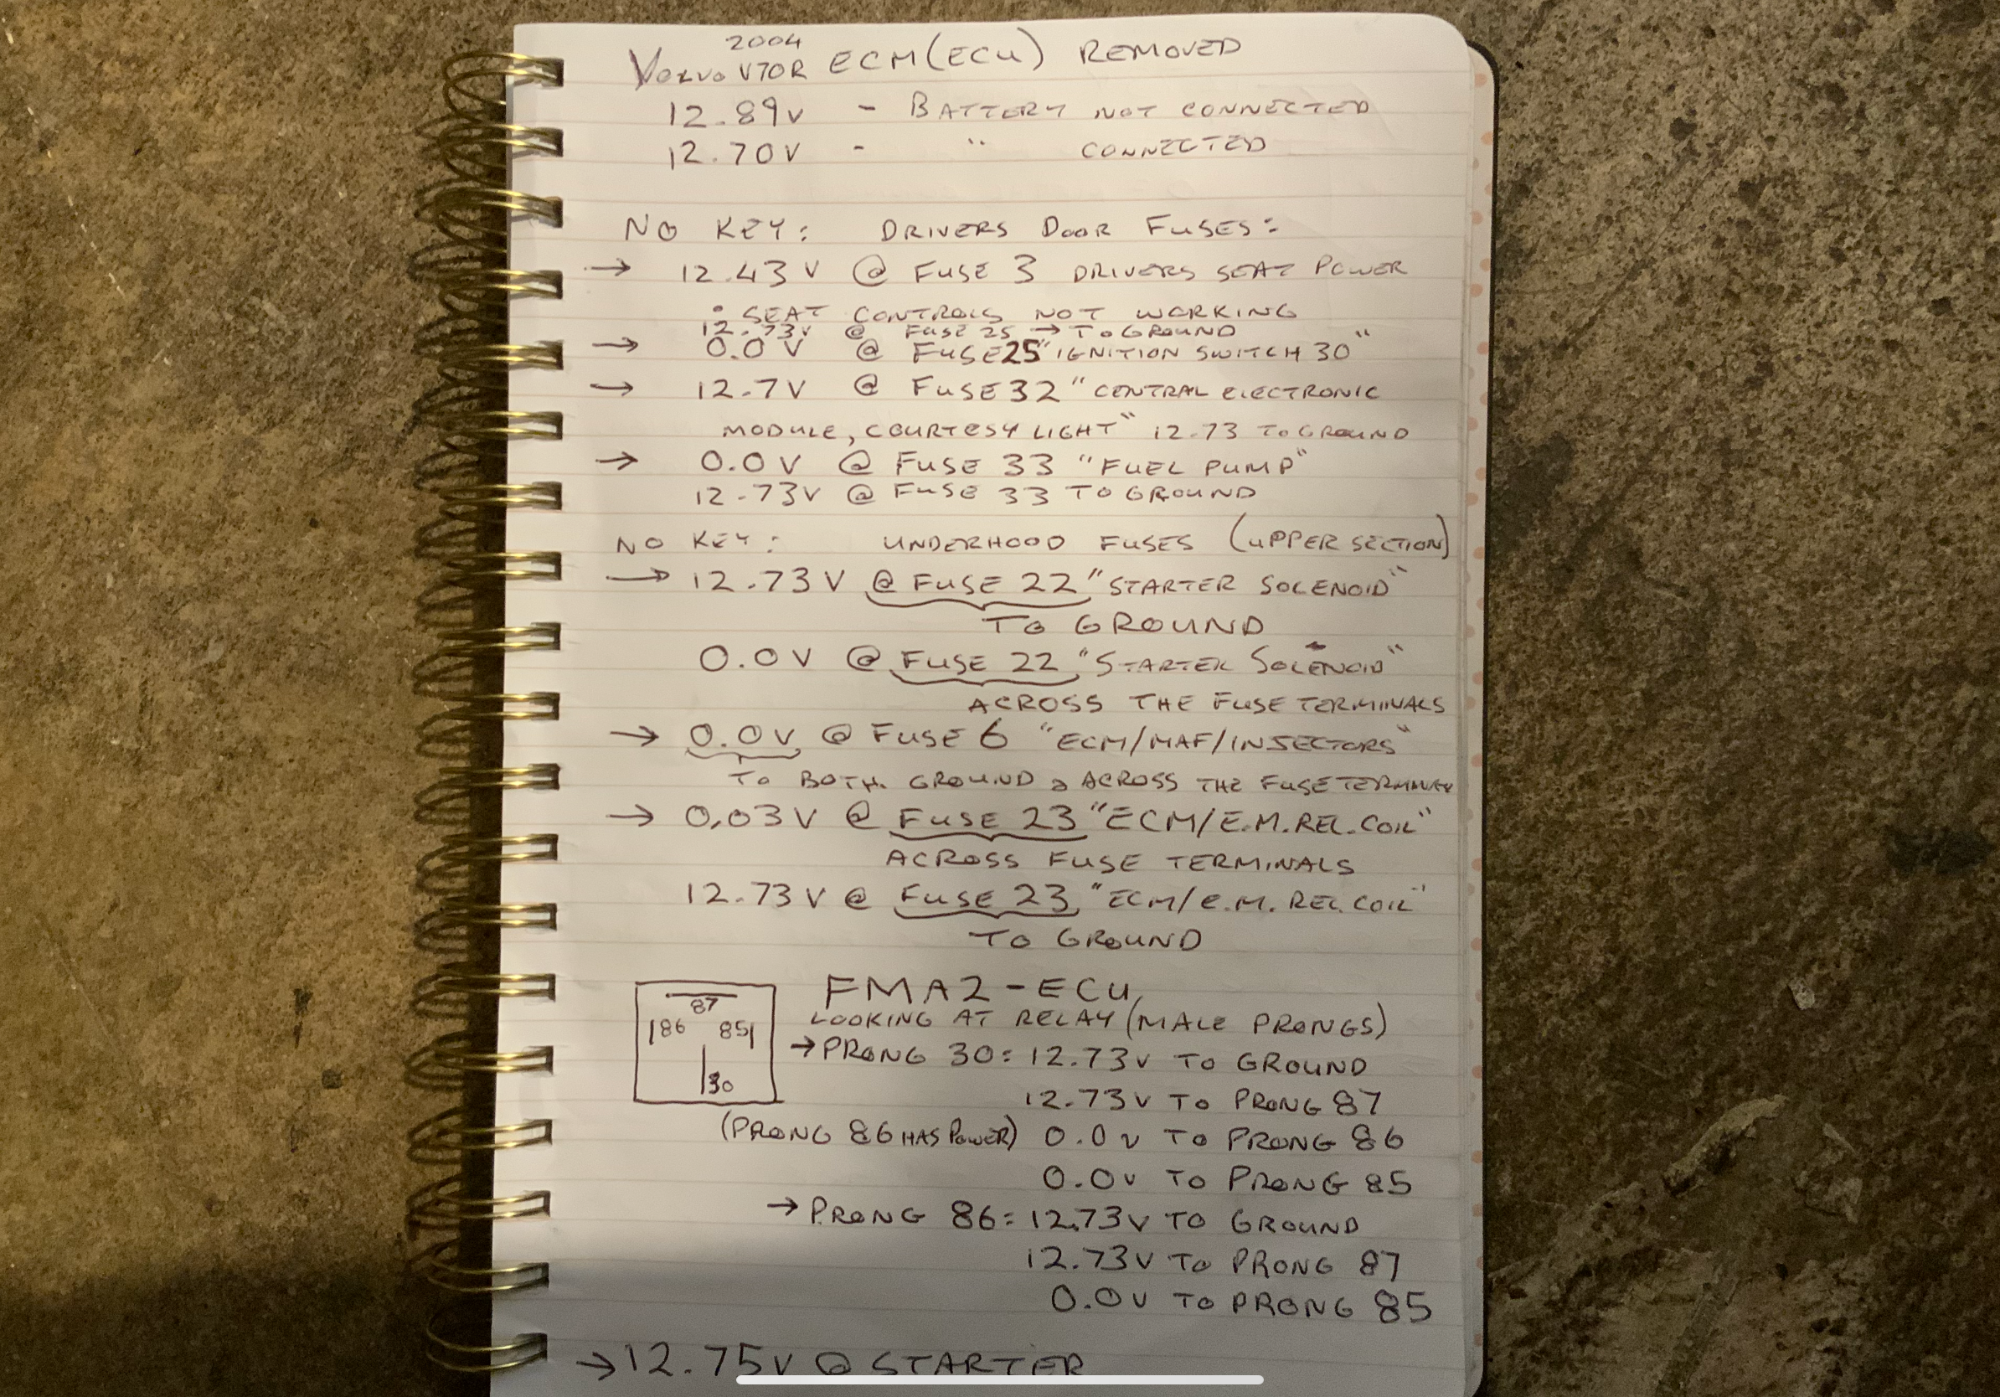 2004
VOLVO V70R ECM(ECU) REMOVED
12.89V - BATTERY NOT CONNECTED
12.70V - " CONNECTED
NO KEY: DRIVERS DOOR FUSES:
→ 12.43 V @ FUSE 3 DRIVERS SEAT POWER
• SEAT CONTROLS NOT WORKING
12.73V @ FUSE 25 → TO GROUND
→ 0.0 V @ FUSE 25 "IGNITION SWITCH 30"
→ 12.7V @ FUSE 32 "CENTRAL ELECTRONIC
MODULE, COURTESY LIGHT" 12.73 TO GROUND
→ 0.0 V @ FUSE 33 "FUEL PUMP"
12.73V @ FUSE 33 TO GROUND
NO KEY: UNDERHOOD FUSES (UPPER SECTION)
→ 12.73 V @ FUSE 22 "STARTER SOLENOID"
TO GROUND
0.0 V @ FUSE 22 "STARTER SOLENOID"
ACROSS THE FUSE TERMINALS
→ 0.0 V @ FUSE 6 "ECM/MAF/INJECTORS"
TO BOTH GROUND & ACROSS THE FUSE TERMINAL
→ 0.03 V @ FUSE 23 "ECM/E.M.REL.COIL"
ACROSS FUSE TERMINALS
12.73 V @ FUSE 23 "ECM/E.M. REL. COIL"
TO GROUND
FMA2-ECU,
LOOKING AT RELAY (MALE PRONGS)
87
86 85
30
→ PRONG 30: 12.73V TO GROUND
12.73V TO PRONG 87
(PRONG 86 HAS POWER) 0.0V TO PRONG 86
0.0V TO PRONG 85
→ PRONG 86: 12.73V TO GROUND
12.73V TO PRONG 87
0.0V TO PRONG 85
→ 12.75V @ STARTER